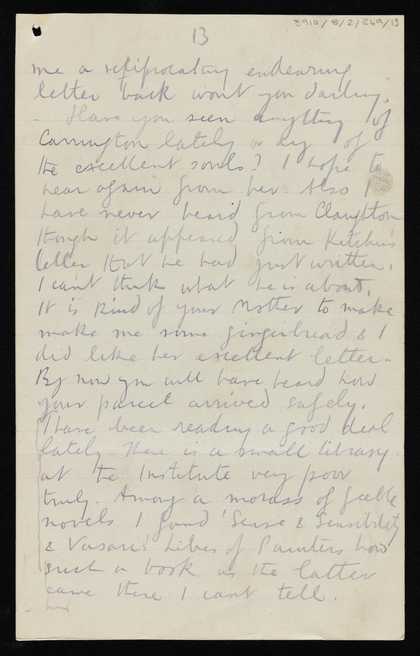 8910/8/2/269/13
13
me a reciprocating endearing
letter back wont you darling.
- Have you seen anything of
Carrington lately or any of
the excellent souls? I hope to
hear again from her. Also I
have never heard from Claughton
though it appeared from Kitchin's
letter that he had just written.
I cant think what he is about.
It is kind of your Mother to make
make me some gingerbread & I
did like her excellent letter -
By now you will have heard how
your parcel arrived safely.
I have been reading a good deal
lately. There is a small library
at the Institute very poor
truly. Among a morass of feeble
novels I found 'Sense & Sensibility
& Vasari's Lives of Painters how
such a book as the latter
came there I cant tell.